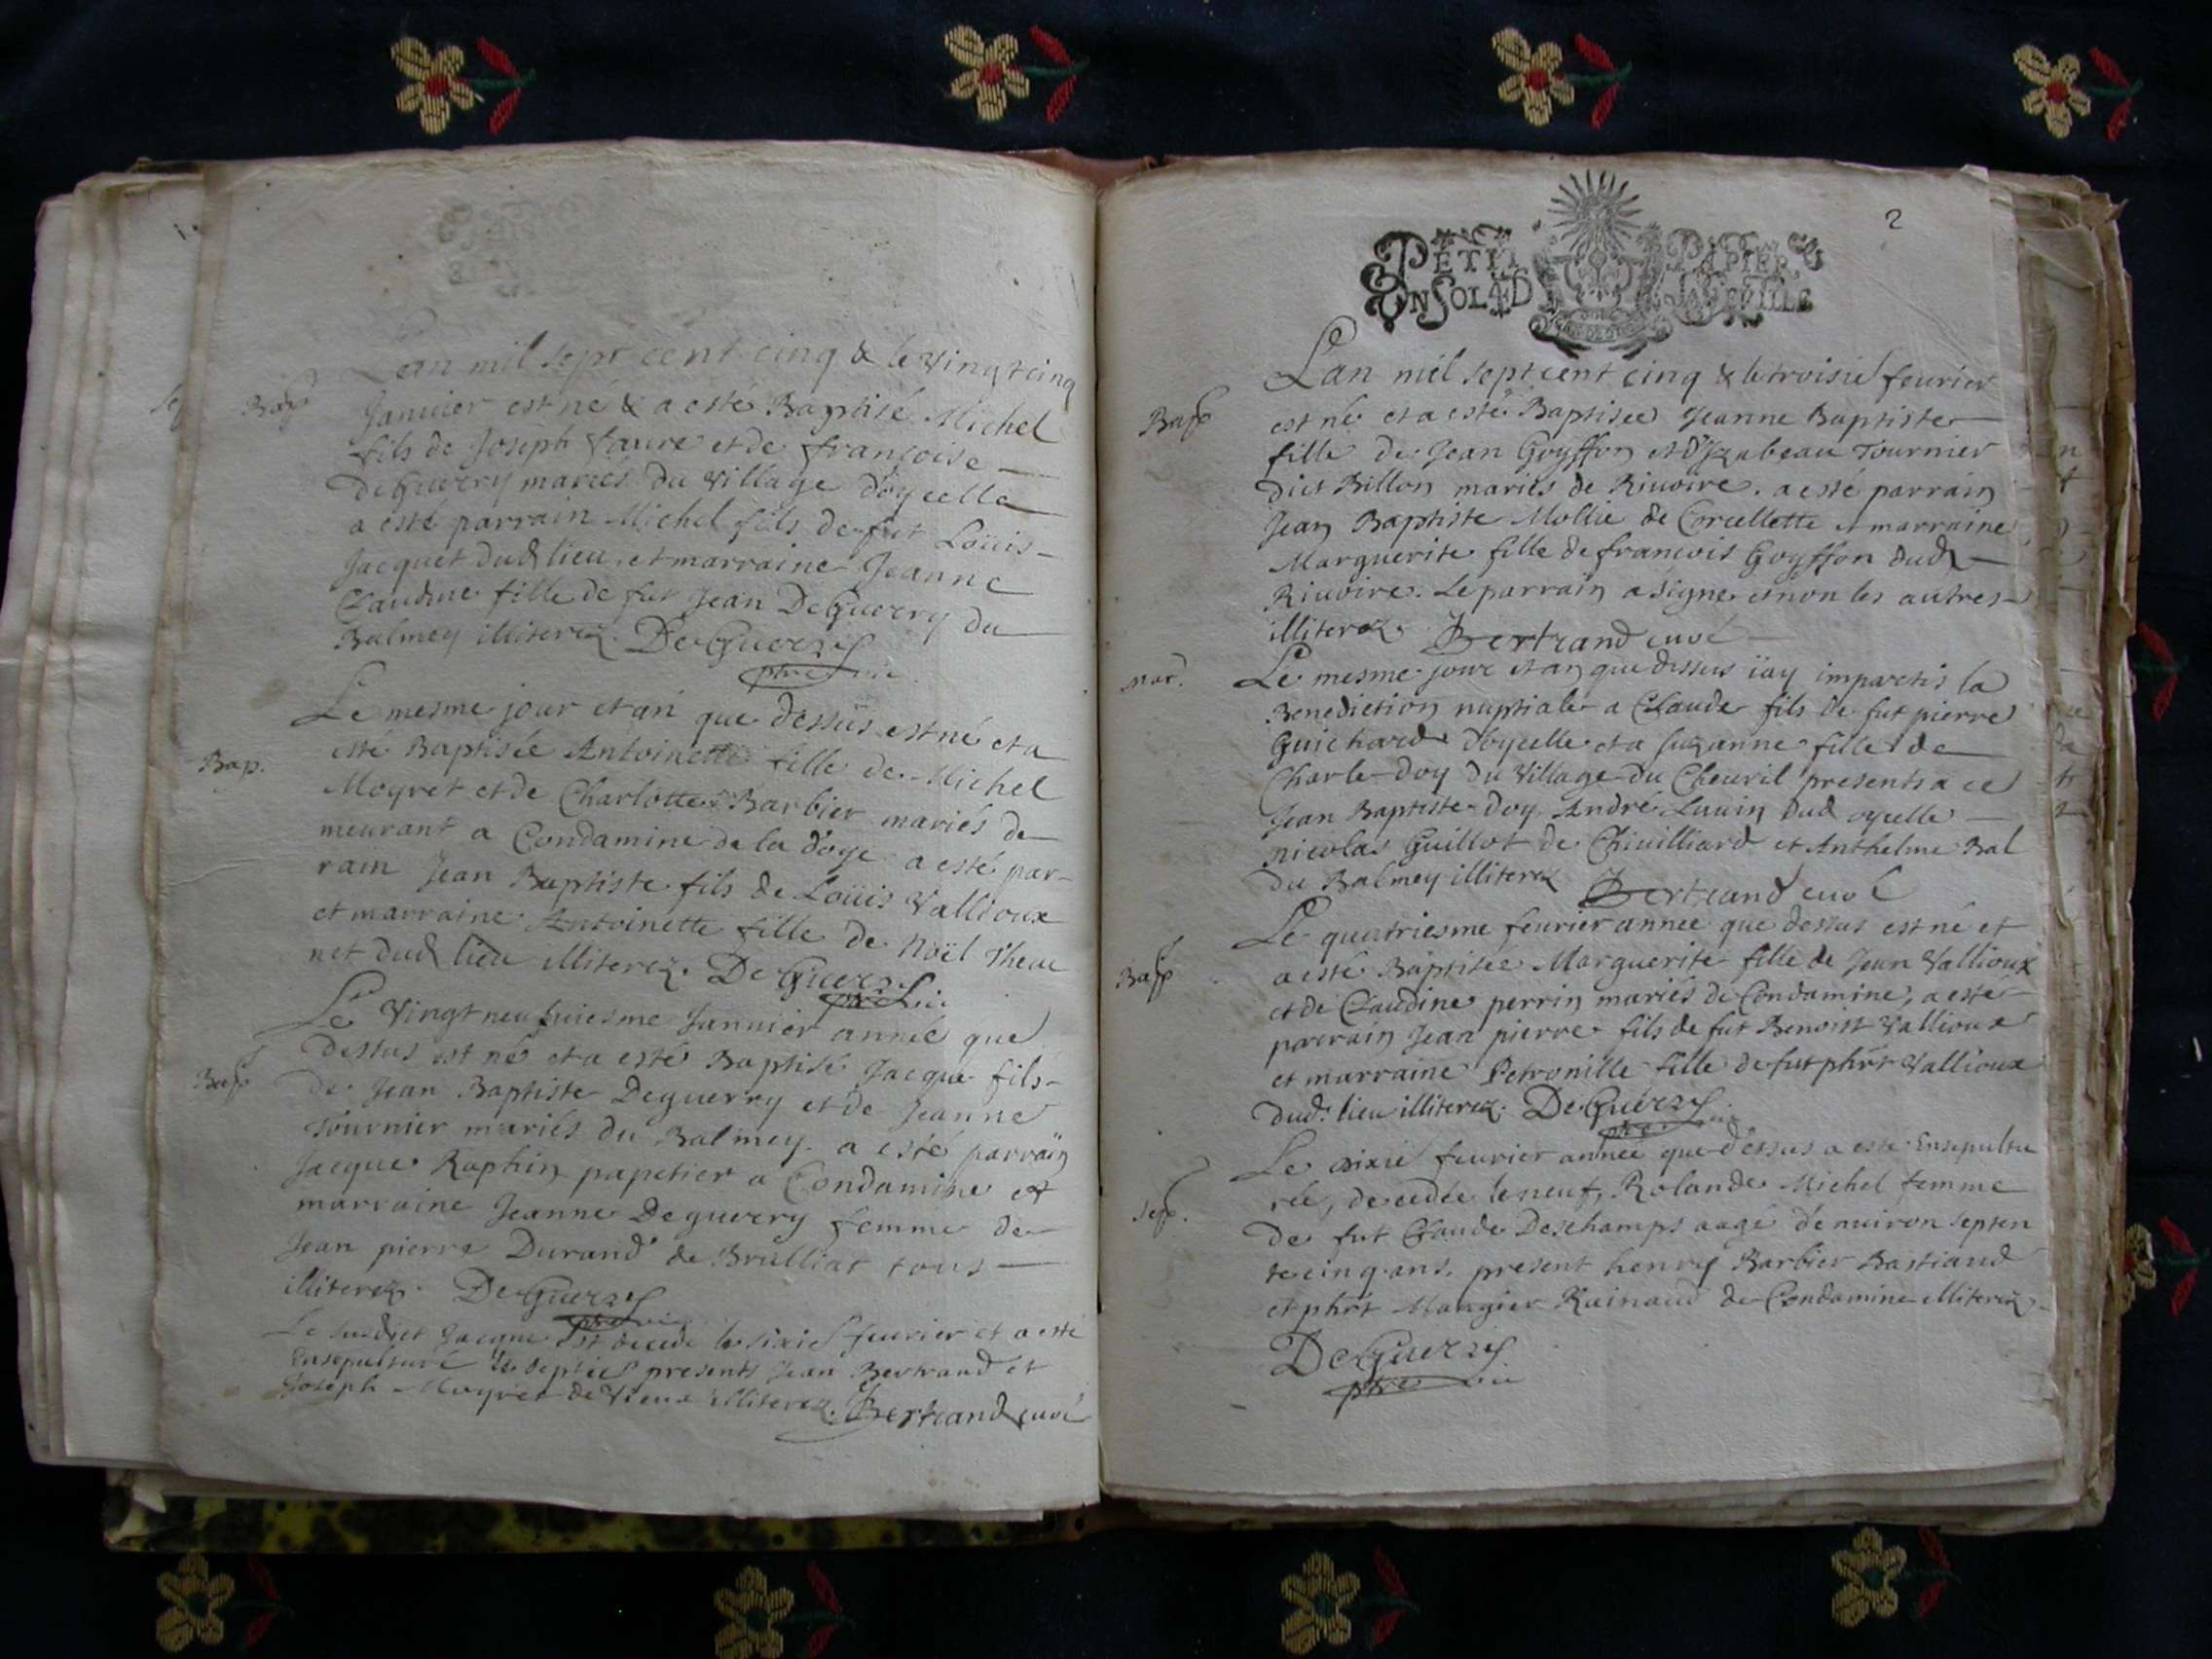 Lan mil sept cent cinq & le vingt cinq
Bap
Janvier est né & a esté Baptisé Michel
fils de Joseph Faure et de francoise
DeGuerry mariés du village d'oycelle
a esté parrain Michel fils de fut Loüis
Jacquet dud lieu, et marraine Jeanne
Claudine fille de fut Jean DeGuerry du
Balmey illiterez. DeGuerry
ptre
Le mesme jour et an que dessüs est né et a
Bap.
esté Baptisée Antoinette fille de Michel
Moyret et de Charlotte Barbier mariés de
meurant a Condamine de la d'oye a esté par-
rain Jean Baptiste fils de Loüis Vallioux
et marraine Antoinette fille de Noël Theue
net dud lieu illiterez. DeGuerry
ptre
Le vingt neufuiesme Januier année que
Bap
dessus est né et a esté Baptisé Jacque fils
de Jean Baptiste Deguerry et de Jeanne
Tournier mariés du Balmey. a esté parrain
Jacque Raphin papetier a Condamine et
marraine Jeanne Deguerry femme de
Jean pierre Durand de Brulliat tous
illiterez. DeGuerry
ptre
Le susdict Jacque est decedé le sixie feurier et a esté
Ensepulturé le septie presents Jean Bertrand et
Joseph Moyret de Vieux illiterez. Bertrand curé
2
PETIT PAPIER
UN SOL 4 D LA FEUILLE
Lan mil sept cent cinq & le troisie feurier
Bap
est né et a esté Baptisee Jeanne Baptiste
fille de Jean Goyffon et d'Jzabeau Tournier
dict Billon mariés de Riuoire. a esté parrain
Jean Baptiste Mollie de Corcellette et marraine
Marguerite fille de francois Goyffon dud
Riuoire. Le parrain a signe et non les autres
illiterez. Bertrand curé
Mar.
Le mesme jour et an que dessus jay imparti la
Benediction nuptiale a Claude fils de fut pierre
Guichard d'oycelle et a Suzanne fille de
Charle Doy du village du Cheuril presents a ce
Jean Baptiste Doy, André Luuin dud oycelle
nicolas Guillot de Chiuilliard et Anthelme Bal
du Balmey illiterez Bertrand curé
Le quatriesme feurier annee que dessus est né et
Bap
a esté Baptisée Marguerite fille de Jean Vallioux
et de Claudine perrin mariés de Condamine, a este
parrain Jean pierre fils de fut Benoist Vallioux
et marraine Petronille fille de fut phirt Vallioux
dud. lieu illiterez. DeGuerry
ptre
Le dixie feurier année que dessus a esté Ensepultu
Sep.
rée, decedée le neuf, Rolande Michel femme
de fut Claude Deschamps aagé d'enuiron septen
te cinq ans. present henry Barbier Bastiand
et phirt Mangier Rainaud de Condamine illiterez
DeGuerry
ptre